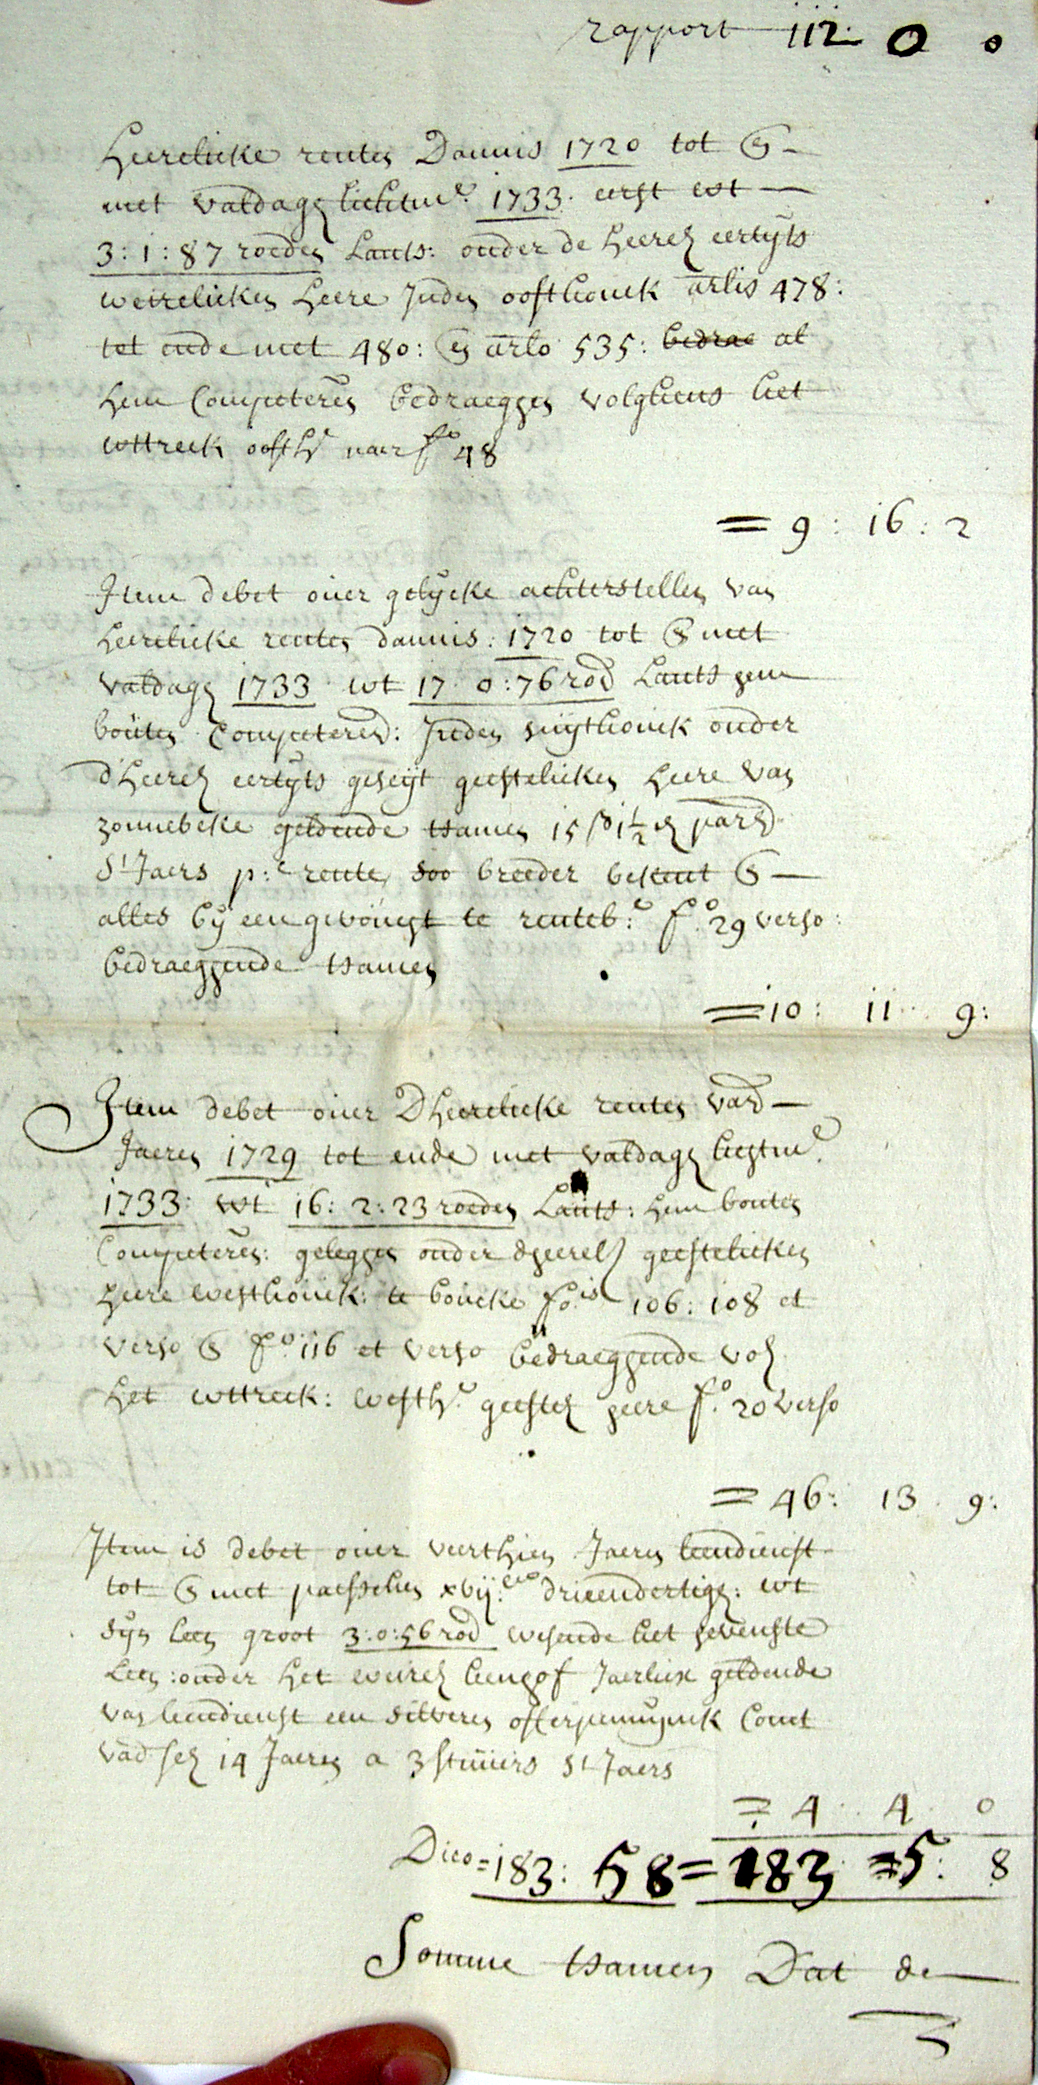 rapport 112 0 0
Heerelicke renten Dannis 1720 tot en
met valdagh lichtm.e 1733: eerst wt
3:1:87 roeden Lants: onder de heerel eertyts
werelicken heere Inden oosthouck artis 478:
tot ende met 480: en arlo 535: bedrae al
hem Competeren bedraeggen volghens het
wttreck oosth.k naer f.o 48
= 9: 16: 2
Item debet over gelycke achterstellen van
heerelicke renten dannis: 1720 tot en met
valdagh 1733 wt 17 0:76 rod Lants hem
bouten Competeren: Inden suythouck onder
d'heerel eertyts geseyt geestelicken heere van
zonnebeke geldende tsamen 15 1½ pars
s'Jaers p.r rente, soo breeder bekent en
alles by een gevought te renteb: f.o 29 verso:
bedraeggende tsamen
= 10: 11 9:
Item debet over Dheerelicke renten vand
Jaeren 1729 tot ende met valdagh lichtm.e
1733: wt 16: 2: 23 roeden Lants: hem bouten
Competeren: geleggen onder dheerel geestelicken
heere westhouck: te boucke fo.is 106: 108 et
verso en f.o 116 et verso bedraeggende vol
het wttreck: westh.k geestel heere f.o 20 verso
= 46: 13 9:
Item is debet over veerthien Jaeren leendienst
tot en met paesschen xvij.en drieendertigh: wt
syn leen groot 3:0:56 rod wesende het sevenste
Leen: onder het werel leenhof Jaerlix geldende
van leendienst een silveren offerpennynck Comt
vad sel 14 Jaeren a 3 stuuers s'Jaers
= 4 4 0
Dico = 183: 58 = 183 = 5: 8
Somme tsamen Dat de